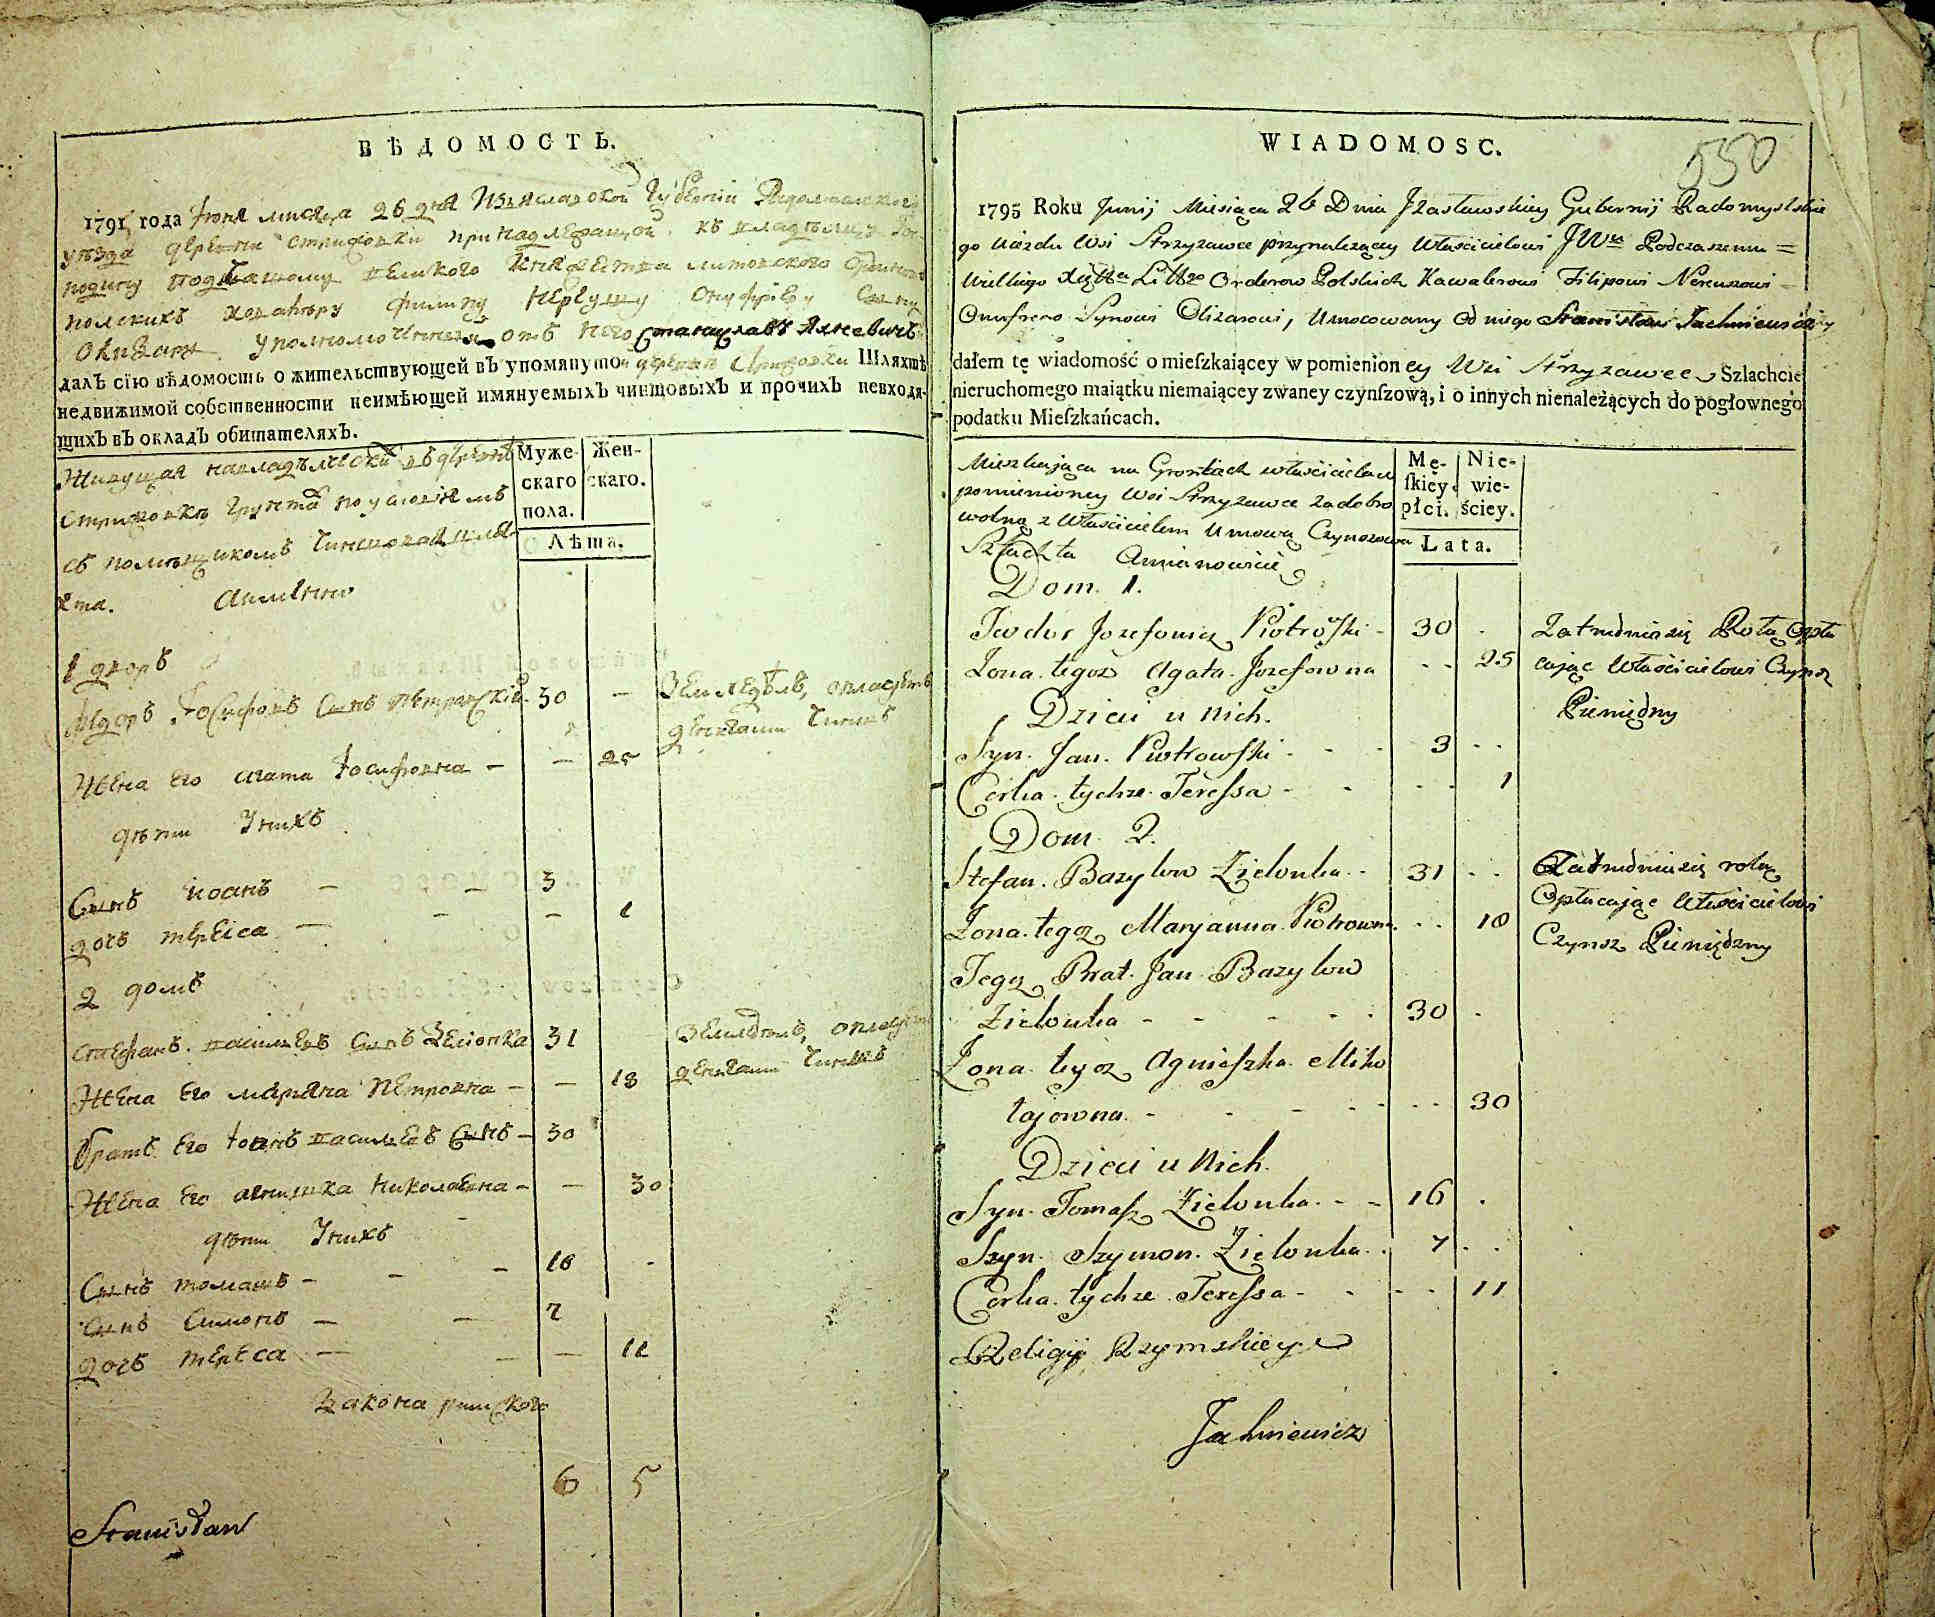 ВѢДОМОСТЬ.
1795 года Іюня мисяца 26 дня Изяславской Губерніи Радомысльского
уѣзда деревни Стрижовки принадлежащой къ владѣлцу
подчашому великого Княжества литовского
полскихъ кавалѣру филипу Нереушу онуфріеву сыну
Олизару уполномоченный отъ него Станиславъ Яхневичъ
далъ сію вѣдомость о жительствующей въ упомянутой деревни Стрижовки Шляхтѣ
недвижимой собственности неимѣющей имянуемыхъ чиншовыхъ и прочихъ невходя-
щихъ въ окладъ обитателяхъ.
Живущая навладѣлческой въ деревнѣ
Стрижовкѣ грунтѣ по условіямъ
съ помѣщикомъ Чиншовая шля
хта. Аимѣнно
Муже-
скаго
пола.
Жен-
скаго.
Лѣта.
1 дворъ
Федоръ Іосифовъ сынъ Петровскій. 30 —
Земледѣлъ, оплачуетъ
денгами Чиншъ
Жена его агата Іосифовна — — 25
дѣти Унихъ
Сынъ Иоанъ — — 3
дочь тереса — — — 1
2 домъ
Стефанъ васильевъ сынъ Зелонка 31
Земледѣлъ, оплачуетъ
денгами Чиншъ
Жена его марияна Петровна — — 18
братъ его Іоанъ васильевъ сынъ — 30
Жена его агнишка Николаевна — — 30
дѣти Унихъ
Сынъ томашъ — — — 16 -
Сынъ Симонъ — — 7
дочь тереса — — — 11
Закона римского
6 5
Stanisław
550
WIADOMOSC.
1795 Roku Junij Miesiąca 26 Dnia Jzasławskiey Gubernij Radomyslskie
go uiazdu Wsi Strzyzawce przynalezącey Właścicielowi JWu Podczaszemu =
Wielkiego Xięttwa Littgo Orderow Polskich Kawalerowi Filipowi Nereuszowi
Onufrero Synowi Olizarowi, Umocowany od niego Stanisław Jachniewicz
dałem tę wiadomość o mieſzkaiącey w pomienioney Wsi Strzyzawce Szlachcie
nieruchomego maiątku niemaiącey zwaney czynſzową, i o innych nienależących do pogłownego
podatku Mieſzkańcach.
Mieszkająca na Gruntach właściciela w
pomienioney Wsi Strzyzawce za dobro
wolną z Właścicielem Umową Czynszowa
Szlachta Amianowicie
Mę-
ſkiey
płci.
Nie-
wie-
ściey.
Lata.
Dom. 1.
Teodor Jozefowicz Piotrowski - 30 .
Zatrudnia się Rolą Opła
Zona. tegoż Agata. Jozefowna . . 25
cając Właścicielowi Czynsz
Pieniędzny
Dzieci u nich.
Syn. Jan. Piotrowſki - - - 3 . .
Corka. tychze. Tereſsa - - - . 1
Dom. 2.
Stefan. Bazylow Zielonka. - 31 . .
Zatrudnia się rolą
Opłacając Właścicielowi
Zona. tegoz Maryanna. Piotrowna. . . 18
Czynsz Pieniędzny
Tegoz Brat. Jan. Bazylow
Zielonka - - - - - - 30 .
Zona. tegoz Agnieſzka. Miko
łajowna. - - - - - . . 30
Dzieci u nich.
Syn. Tomaſz Zielonka. - - 16 .
Syn. Szymon. Zielonka. . 7 . .
Corka. tychze Tereſsa - - - . 11
Religij Rzymskiey
Jachniewicz